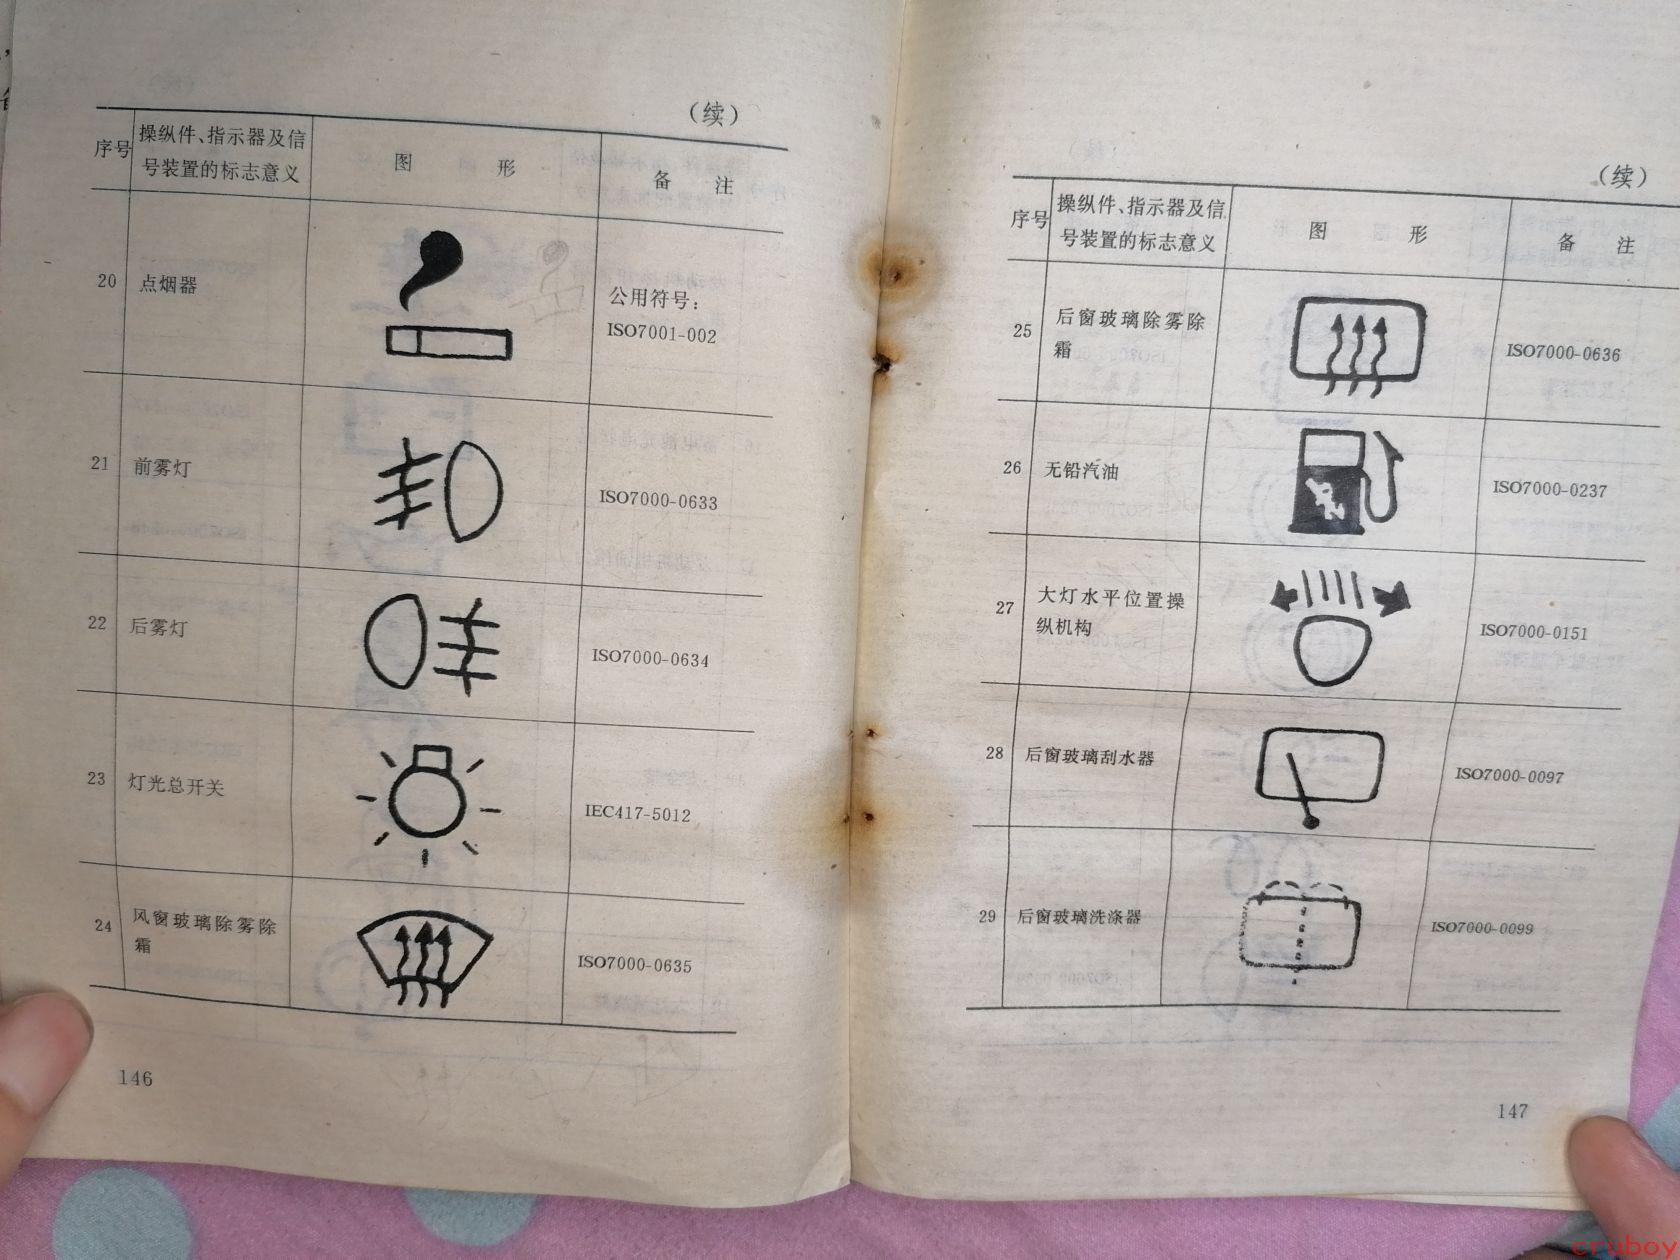 （续）
序号
操纵件、指示器及信
号装置的标志意义
图 形
备 注
20
点烟器
公用符号：
ISO7001-002
21
前雾灯
ISO7000-0633
22
后雾灯
ISO7000-0634
23
灯光总开关
IEC417-5012
24
风窗玻璃除雾除
霜
ISO7000-0635
146
（续）
序号
操纵件、指示器及信
号装置的标志意义
图 形
备 注
25
后窗玻璃除雾除
霜
ISO7000-0636
26
无铅汽油
ISO7000-0237
27
大灯水平位置操
纵机构
ISO7000-0151
28
后窗玻璃刮水器
ISO7000-0097
29
后窗玻璃洗涤器
ISO7000-0099
147
cruboy